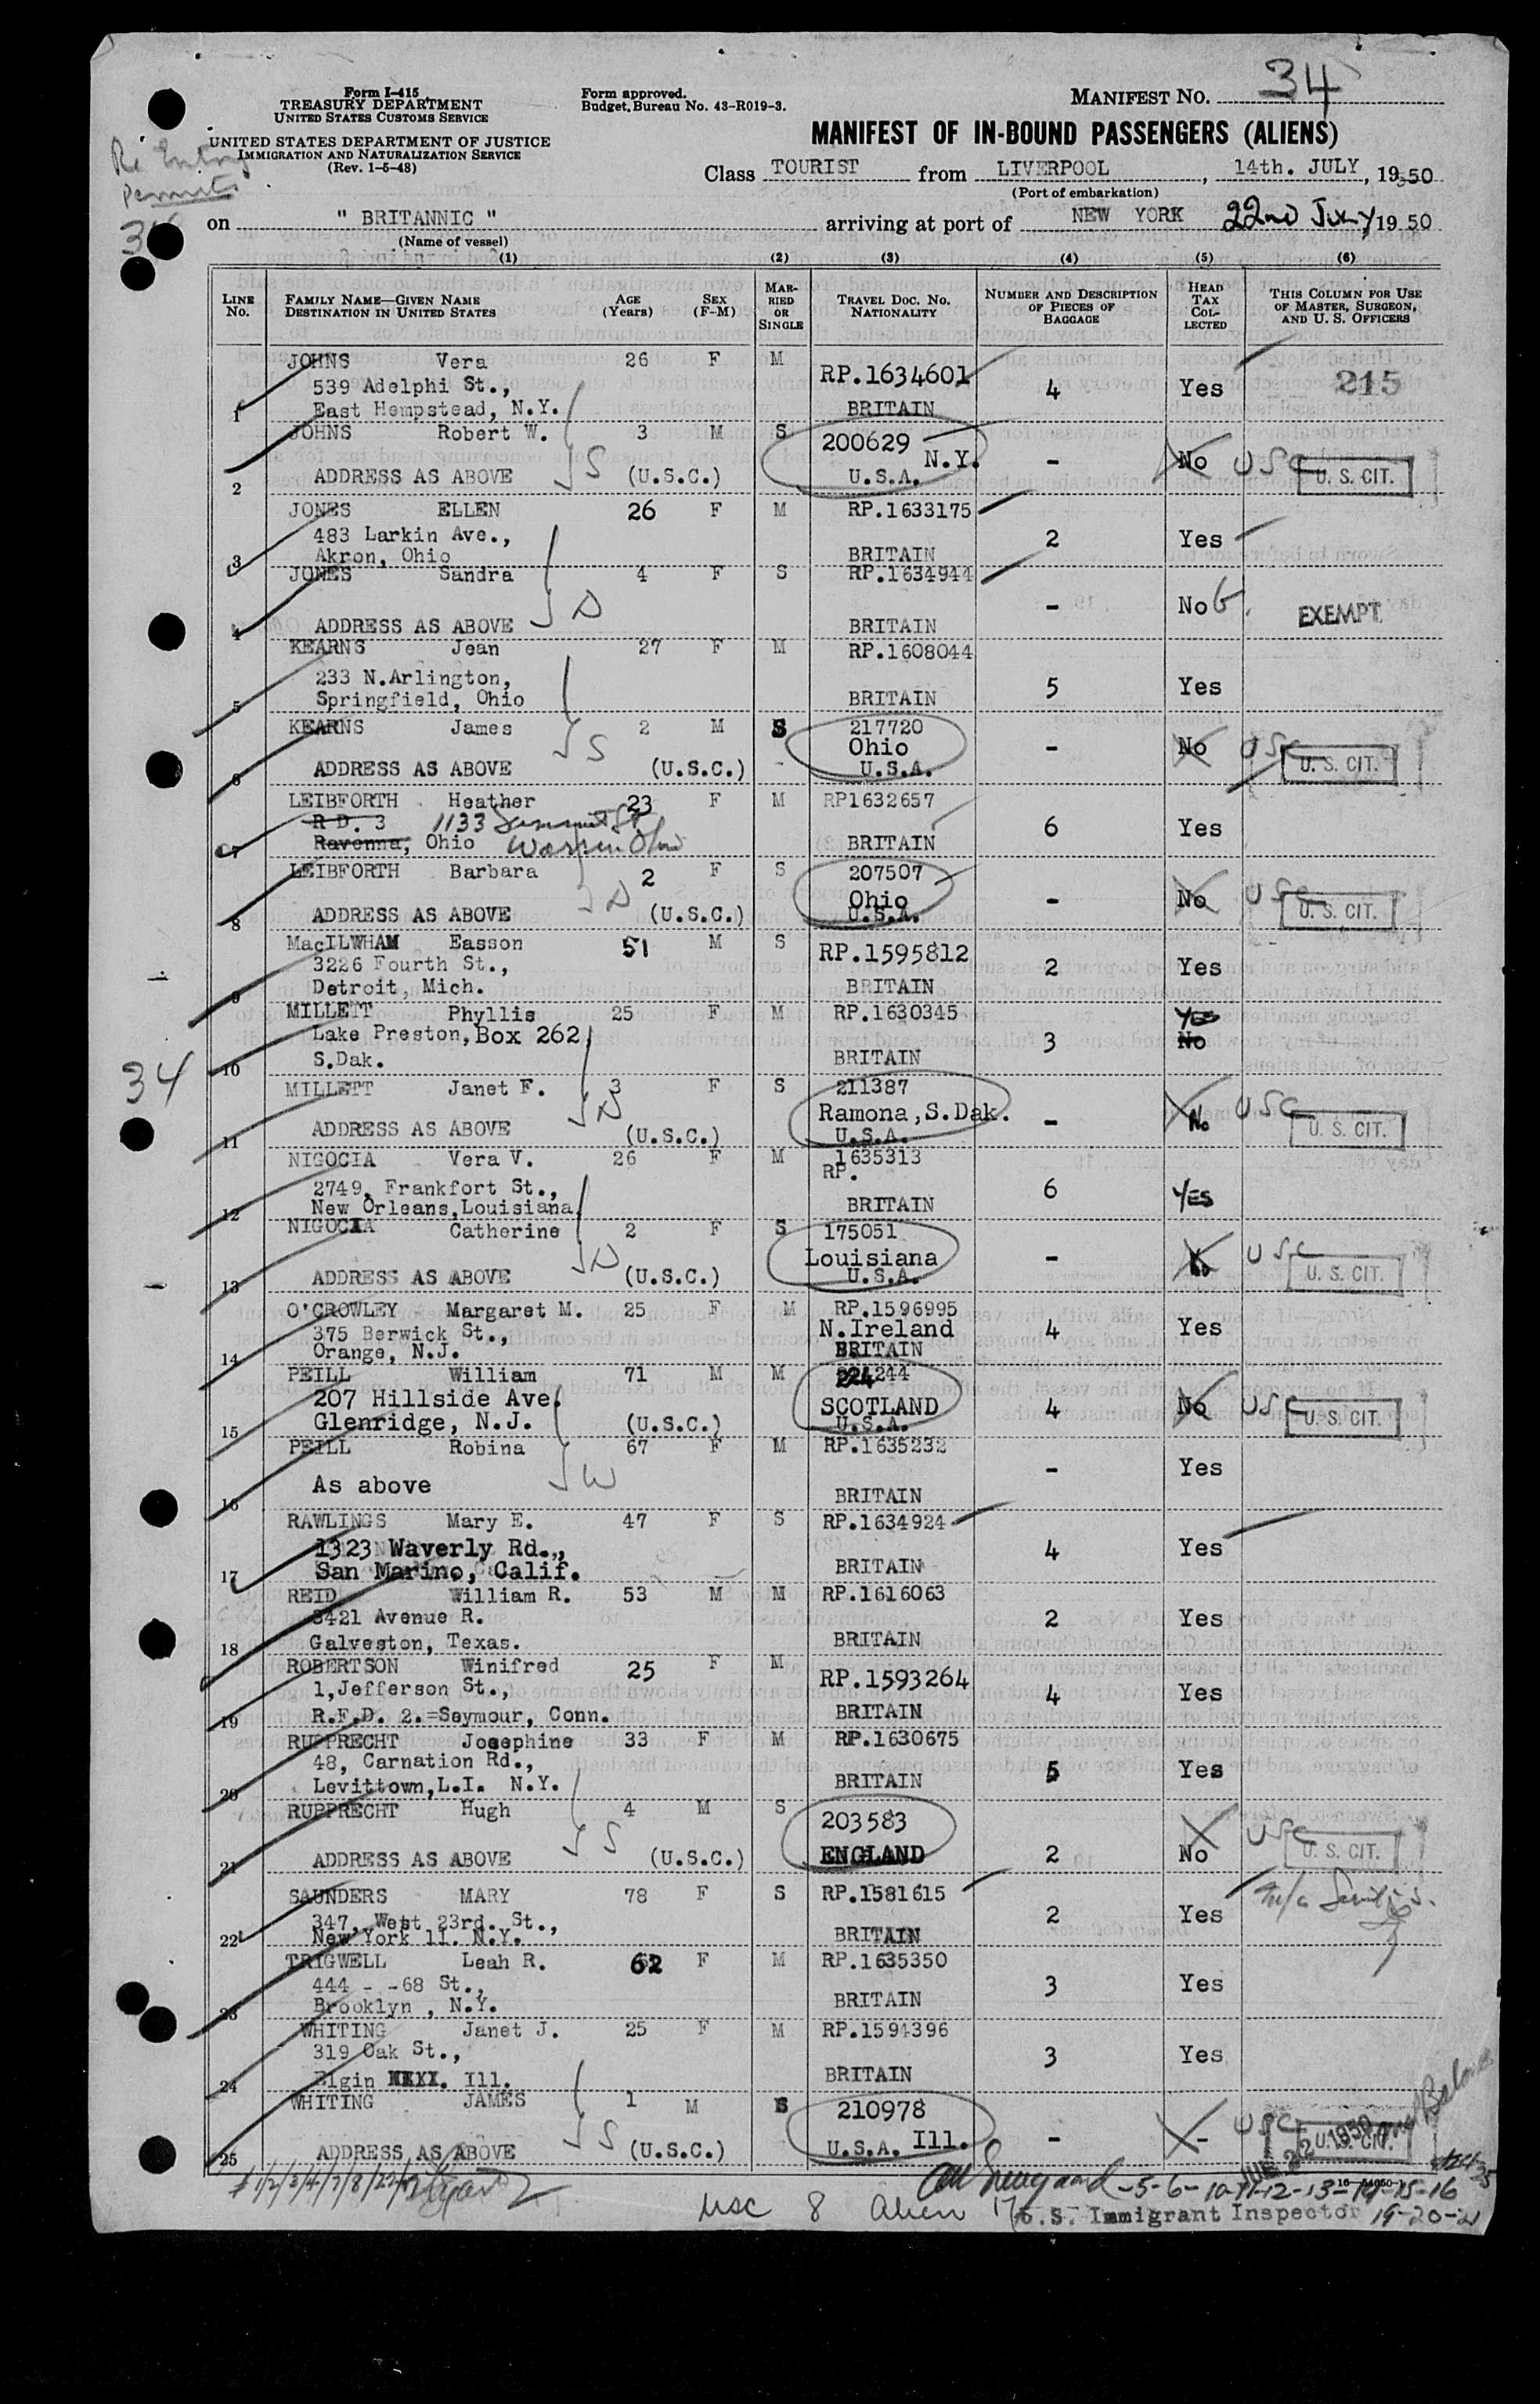 Form I-415
TREASURY DEPARTMENT
UNITED STATES CUSTOMS SERVICE
UNITED STATES DEPARTMENT OF JUSTICE
IMMIGRATION AND NATURALIZATION SERVICE
(Rev. 1-5-48)
Form approved.
Budget Bureau No. 43-R019-3.
MANIFEST NO. 34
MANIFEST OF IN-BOUND PASSENGERS (ALIENS)
Re Entry
Permits
34
Class TOURIST from LIVERPOOL, 14th. JULY, 1950
(Port of embarkation)
on " BRITANNIC " arriving at port of NEW YORK 22nd July, 1950
(Name of vessel)
(1) (2) (3) (4) (5) (6)
LINE No. FAMILY NAME—GIVEN NAME DESTINATION IN UNITED STATES AGE (Years) SEX (F-M) MARRIED OR SINGLE TRAVEL DOC. NO. NATIONALITY NUMBER AND DESCRIPTION OF PIECES OF BAGGAGE HEAD TAX COLLECTED THIS COLUMN FOR USE OF MASTER, SURGEON, AND U. S. OFFICERS
JOHNS Vera 26 F M RP.1634601
539 Adelphi St., 4 Yes 215
1 East Hempstead, N.Y. BRITAIN
JOHNS Robert W. 3 M S 200629
N.Y. - No USC
2 ADDRESS AS ABOVE (U.S.C.) U.S.A. U. S. CIT.
JONES ELLEN 26 F M RP.1633175
483 Larkin Ave., 2 Yes
3 Akron, Ohio BRITAIN
JONES Sandra 4 F S RP.1634944
- No EXEMPT
4 ADDRESS AS ABOVE BRITAIN
KEARNS Jean 27 F M RP.1608044
233 N.Arlington, 5 Yes
5 Springfield, Ohio BRITAIN
KEARNS James 2 M S 217720
Ohio - No USC
6 ADDRESS AS ABOVE (U.S.C.) U.S.A. U. S. CIT.
LEIBFORTH Heather 23 F M RP1632657
R D. 3 1133 Summit St 6 Yes
7 Ravenna, Ohio Warren Ohio BRITAIN
LEIBFORTH Barbara 2 F S 207507
Ohio - No USC
8 ADDRESS AS ABOVE (U.S.C.) U.S.A. U. S. CIT.
MacILWHAM Easson 51 M S RP.1595812
3226 Fourth St., 2 Yes
9 Detroit, Mich. BRITAIN
MILLETT Phyllis 25 F M RP.1630345 YES
Lake Preston, Box 262, 3 No
10 S.Dak. BRITAIN
34
MILLETT Janet F. 3 F S 211387
Ramona, S.Dak. - No USC
11 ADDRESS AS ABOVE (U.S.C.) U.S.A. U. S. CIT.
NIGOCIA Vera V. 26 F M 1635313
RP.
2749, Frankfort St., 6 YES
12 New Orleans, Louisiana. BRITAIN
NIGOCIA Catherine 2 F S 175051
Louisiana - No USC
13 ADDRESS AS ABOVE (U.S.C.) U.S.A. U. S. CIT.
O'CROWLEY Margaret M. 25 F M RP.1596995
375 Berwick St., N.Ireland 4 Yes
14 Orange, N.J. BRITAIN
PEILL William 71 M M 224244
207 Hillside Ave. SCOTLAND 4 No USC
15 Glenridge, N.J. (U.S.C.) U.S.A. U. S. CIT.
PEILL Robina 67 F M RP.1635232
- Yes
16 As above BRITAIN
RAWLINGS Mary E. 47 F S RP.1634924
1323 Waverly Rd., 4 Yes
17 San Marino, Calif. BRITAIN
REID William R. 53 M M RP.1616063
3421 Avenue R. 2 Yes
18 Galveston, Texas. BRITAIN
ROBERTSON Winifred 25 F M RP.1593264
1,Jefferson St., 4 Yes
19 R.F.D. 2.=Seymour, Conn. BRITAIN
RUPPRECHT Josephine 33 F M RP.1630675
48, Carnation Rd., 5 Yes
20 Levittown,L.I. N.Y. BRITAIN
RUPPRECHT Hugh 4 M S 203583
USC
21 ADDRESS AS ABOVE (U.S.C.) ENGLAND 2 No U. S. CIT.
SAUNDERS MARY 78 F S RP.1581615
347, West 23rd. St., 2 Yes
22 New York 11. N.Y. BRITAIN
TRIGWELL Leah R. 62 F M RP.1635350
444 - -68 St., 3 Yes
23 Brooklyn , N.Y. BRITAIN
WHITING Janet J. 25 F M RP.1594396
319 Oak St., 3 Yes
24 Elgin Ill. BRITAIN
WHITING JAMES 1 M S 210978
USC
25 ADDRESS AS ABOVE (U.S.C.) U.S.A. Ill. - - U. S. CIT.
JUL 22 1950
-5-6-10-11-12-13-14-15-16
usc 8 Alien 17 U.S. Immigrant Inspector 19-20-21